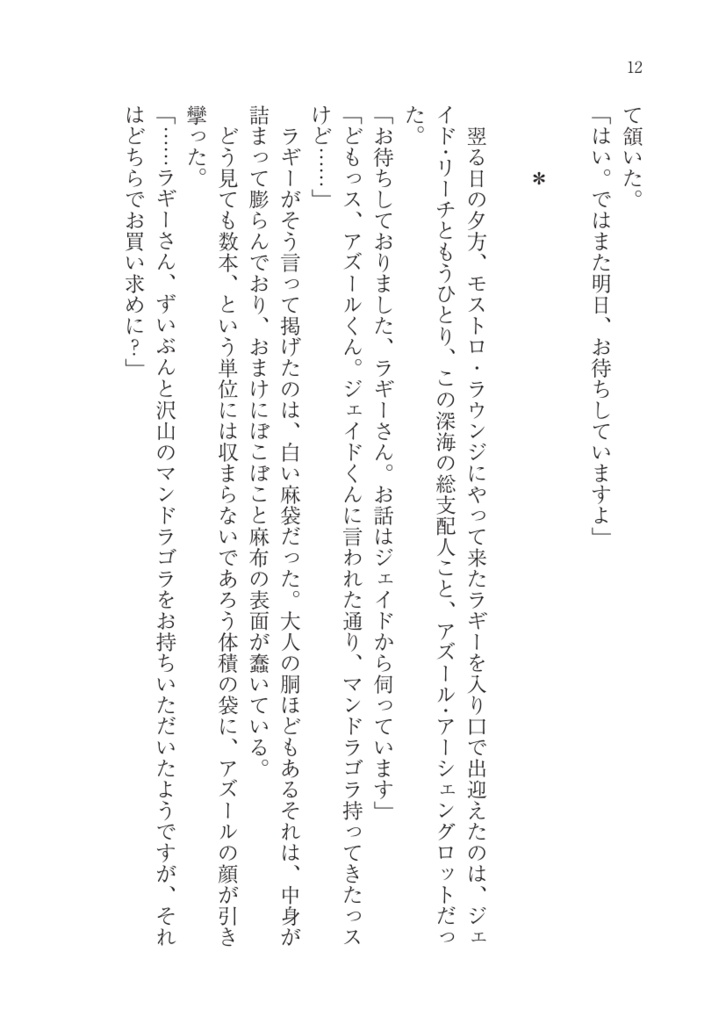 12
て頷いた。
「はい。ではまた明日、お待ちしていますよ」
*
　翌る日の夕方、モストロ・ラウンジにやって来たラギーを入り口で出迎えたのは、ジェ
イド・リーチともうひとり、この深海の総支配人こと、アズール・アーシェングロットだっ
た。
「お待ちしておりました、ラギーさん。お話はジェイドから伺っています」
「どもっス、アズールくん。ジェイドくんに言われた通り、マンドラゴラ持ってきたっス
けど……」
　ラギーがそう言って掲げたのは、白い麻袋だった。大人の胴ほどもあるそれは、中身が
詰まって膨らんでおり、おまけにぼこぼこと麻布の表面が蠢いている。
　どう見ても数本、という単位には収まらないであろう体積の袋に、アズールの顔が引き
攣った。
「……ラギーさん、ずいぶんと沢山のマンドラゴラをお持ちいただいたようですが、それ
はどちらでお買い求めに？」